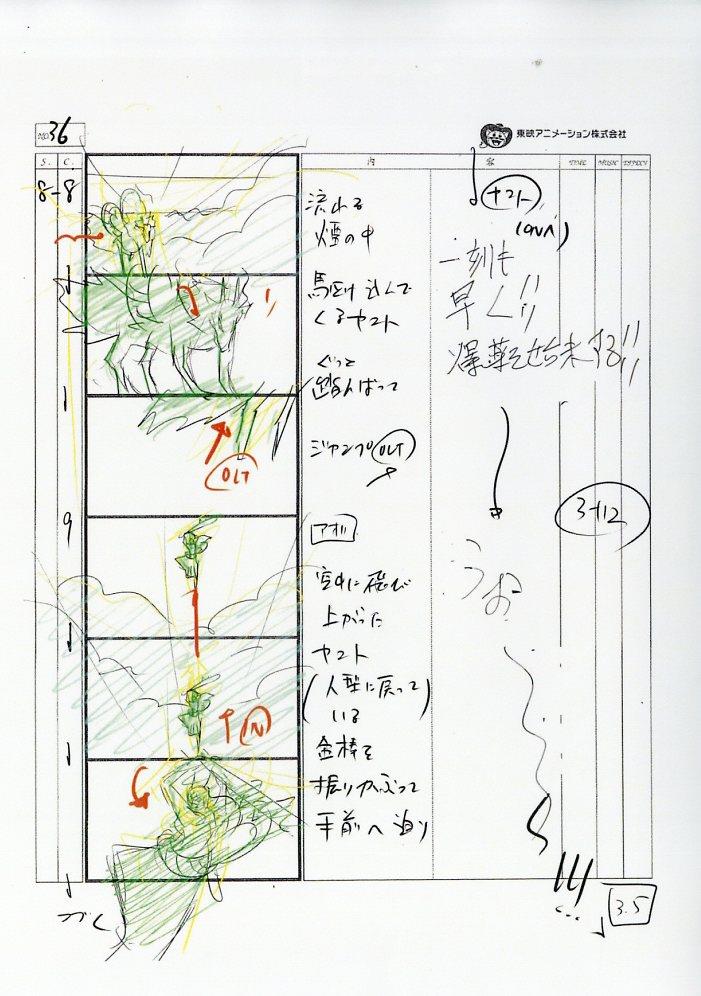 NO. 36
東映アニメーション株式会社
S. C. 内 容 TIME MUSIC EFFECT
8-8
流れる
煙の中
馬走り込んで
くるヤマト
ぐっと
踏んばって
ジャンプ OUT
ヤマト
(OFF)
一刻も
早く!!
爆薬を始末する!!
OUT
3+12
9
アオリ
空中に飛び
上がった
ヤマト
(人型に戻って
いる)
金棒を
振りかぶって
手前へ迫り
うお
IN
!!!
つづく
3.5